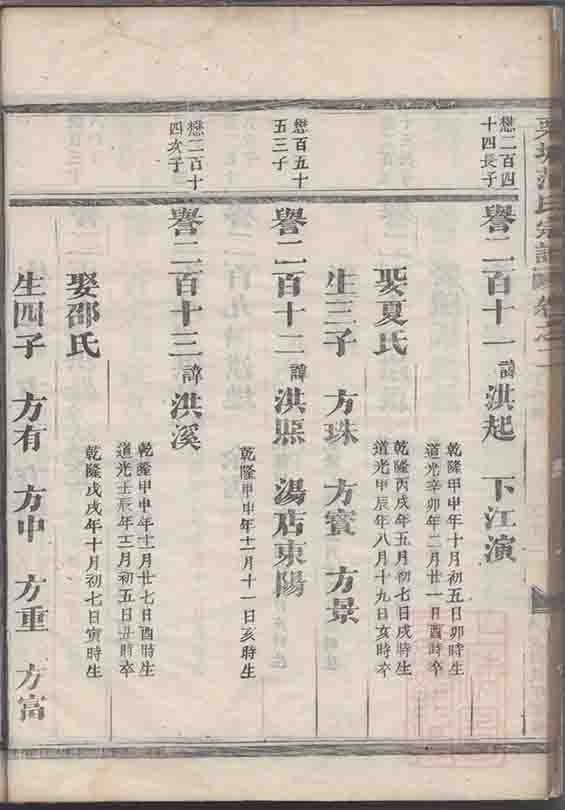 氏宗譜 卷之二
懋二百四
十四長子
譽二百十一 諱 洪起 下江演
乾隆甲申年十月初五日卯時生
道光辛卯年二月廿一日酉時卒
娶夏氏
乾隆丙戌年五月初七日戌時生
道光甲辰年八月十九日亥時卒
生三子 方珠 方賓 方景
懋百五十
五三子
譽二百十二 諱 洪熙 湯店東陽
乾隆甲申年十一月十一日亥時生
懋二百十
四次子
譽二百十三 諱 洪溪
乾隆甲申年十一月廿七日酉時生
道光壬辰年十二月初五日丑時卒
娶邵氏
乾隆戊戌年十月初七日寅時生
生四子 方有 方申 方重 方富